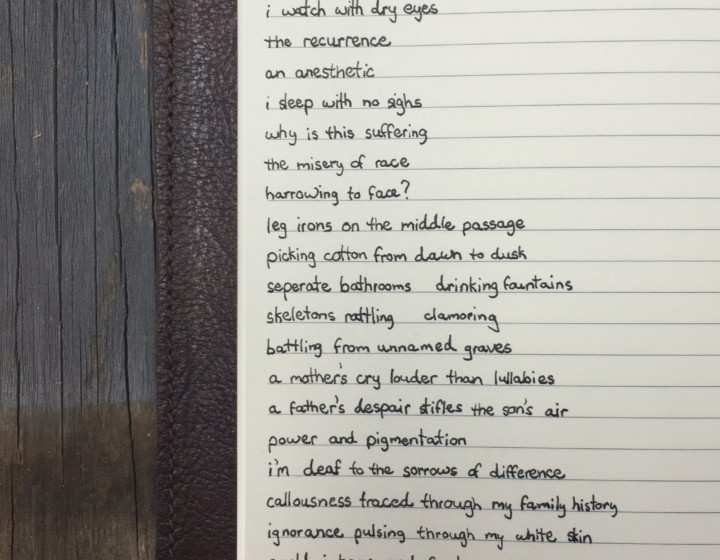 i watch with dry eyes
the recurrence
an anesthetic
i sleep with no sighs
why is this suffering
the misery of race
harrowing to face?
leg irons on the middle passage
picking cotton from dawn to dusk
seperate bathrooms drinking fountains
skeletons rattling clamoring
battling from unnamed graves
a mother's cry louder than lullabies
a father's despair stifles the son's air
power and pigmentation
i'm deaf to the sorrows of difference
callousness traced through my family history
ignorance pulsing through my white skin